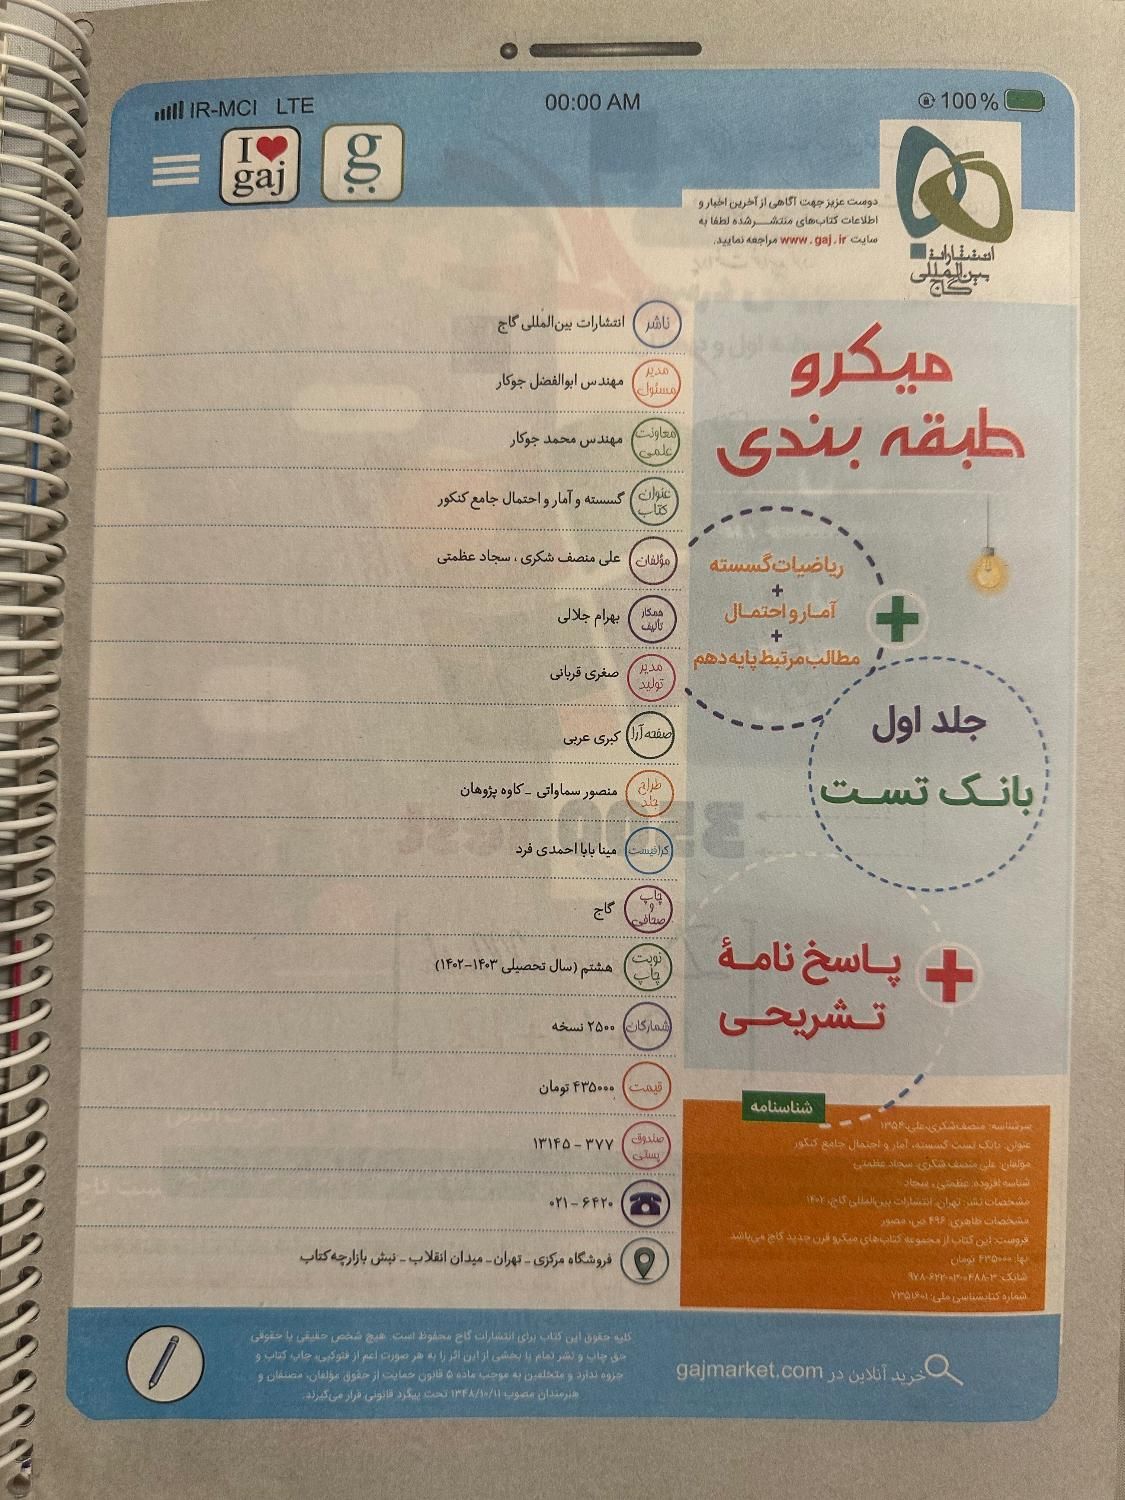 IR-MCI LTE
00:00 AM
100%
I ❤ gaj
g
دوست عزیز جهت آگاهی از آخرین اخبار و
اطلاعات کتاب‌های منتشرشده لطفا به
سایت www.gaj.ir مراجعه نمایید.
انتشارات
بین‌المللی
گاج
میکرو
طبقه بندی
ریاضیات گسسته
+
آمار و احتمال
+
مطالب مرتبط پایه دهم
جلد اول
بانک تست
پاسخ نامهٔ
تشریحی
ناشر انتشارات بین‌المللی گاج
مدیر مسئول مهندس ابوالفضل جوکار
معاونت علمی مهندس محمد جوکار
عنوان کتاب گسسته و آمار و احتمال جامع کنکور
مؤلفان علی منصف شکری ، سجاد عظمتی
همکار تألیف بهرام جلالی
مدیر تولید صغری قربانی
صفحه آرا کبری عربی
طراح جلد منصور سماواتی - کاوه پژوهان
گرافیست مینا بابا احمدی فرد
چاپ و صحافی گاج
نوبت چاپ هشتم (سال تحصیلی ۱۴۰۳-۱۴۰۲)
شمارگان ۲۵۰۰ نسخه
قیمت ۴۳۵۰۰۰ تومان
صندوق پستی ۳۷۷ - ۱۳۱۴۵
۰۲۱ - ۶۴۲۰
فروشگاه مرکزی - تهران - میدان انقلاب - نبش بازارچه کتاب
شناسنامه
سرشناسه: منصف‌شکری،علی،۱۳۵۴
عنوان: بانک تست گسسته، آمار و احتمال جامع کنکور
مؤلفان: علی منصف شکری، سجاد عظمتی
شناسه افزوده: عظمتی ، سجاد
مشخصات نشر: تهران، انتشارات بین‌المللی گاج، ۱۴۰۲
مشخصات ظاهری: ۴۹۶ ص، مصور
فروست: این کتاب از مجموعه کتاب‌های میکرو قرن جدید گاج می‌باشد
بها: ۴۳۵۰۰۰ تومان
شابک: ۳-۰۴۸۸-۰۳-۶۲۲-۹۷۸
شماره کتابشناسی ملی: ۷۳۵۱۶۰۱
خرید آنلاین در gajmarket.com
کلیه حقوق این کتاب برای انتشارات گاج محفوظ است. هیچ شخص حقیقی یا حقوقی
حق چاپ و نشر تمام یا بخشی از این اثر را به هر صورت اعم از فتوکپی، چاپ کتاب و
جزوه ندارد و متخلفین به موجب ماده ۵ قانون حمایت از حقوق مؤلفان، مصنفان و
هنرمندان مصوب ۱۳۴۸/۱۰/۱۱ تحت پیگرد قانونی قرار می‌گیرند.